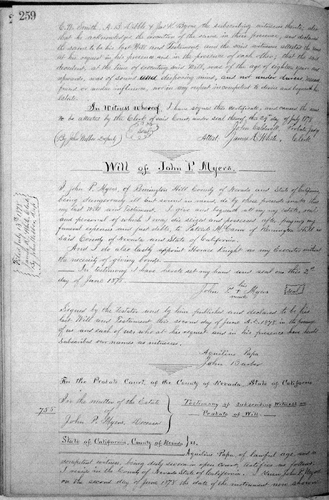 259
C. W. Smith, M. B. and Jas. K. Byrne, the subscribing witnesses thereto, also
that he acknowledged the execution of the same in their presence, and declared
the same to be his last Will and Testament, and the said witnesses attested the same
at his request in his presence and in the presence of each other; that the said
decedent, at the time of executing said Will, was of the age of eighteen years and
upwards, was of sound and disposing mind, and not under duress, menace,
fraud or undue influence, nor in any respect incompetent to devise and bequeath his
estate.
In Witness whereof, I have signed this certificate, and caused the same
to be attested by the Clerk of said Court, under seal thereof, this day of July 1878
John Caldwell Probate Judge
(By John Deputy)
Attest, James Clerk
Will of John P. Myers.
I John P. Myers, of Remington Hill County of Nevada and State of California
being dangerously ill but sound in mind, do by these presents make this
my last Will and testament. I give and bequeath all my
and personal of which I may die seized and possessed after paying my
funeral expenses and just debts, to Patrick McCann of Remington Hill in
said County of Nevada and State of California.
And I do also hereby appoint Horace Knight as my Executor without
the necessity of giving bonds.
In testimony I have hereto set my hand and seal on this 2nd
day of June 1878.
John P. his mark Myers
Signed by the testator and by him published and declared to be his
last Will and Testament this second day of June A.D. 1878. in the presence
of us and each of us, who at his request and in his presence have hereto
subscribed our names as witnesses.
Aquiline Papa
John Baxter
In the Probate Court, of the County of Nevada, State of California
In the matter of the Estate
of
John P. Myers Deceased
Testimony of Subscribing Witness on
Probate of Will
State of California, County of Nevada } ss.
Aquiline Papa of lawful age, and a
competent witness, being duly sworn in open Court, testifies as follows:
I reside in the County of Nevada State of California. I knew John P. Myers
on the second day of June 1878 the date of the instrument now shown